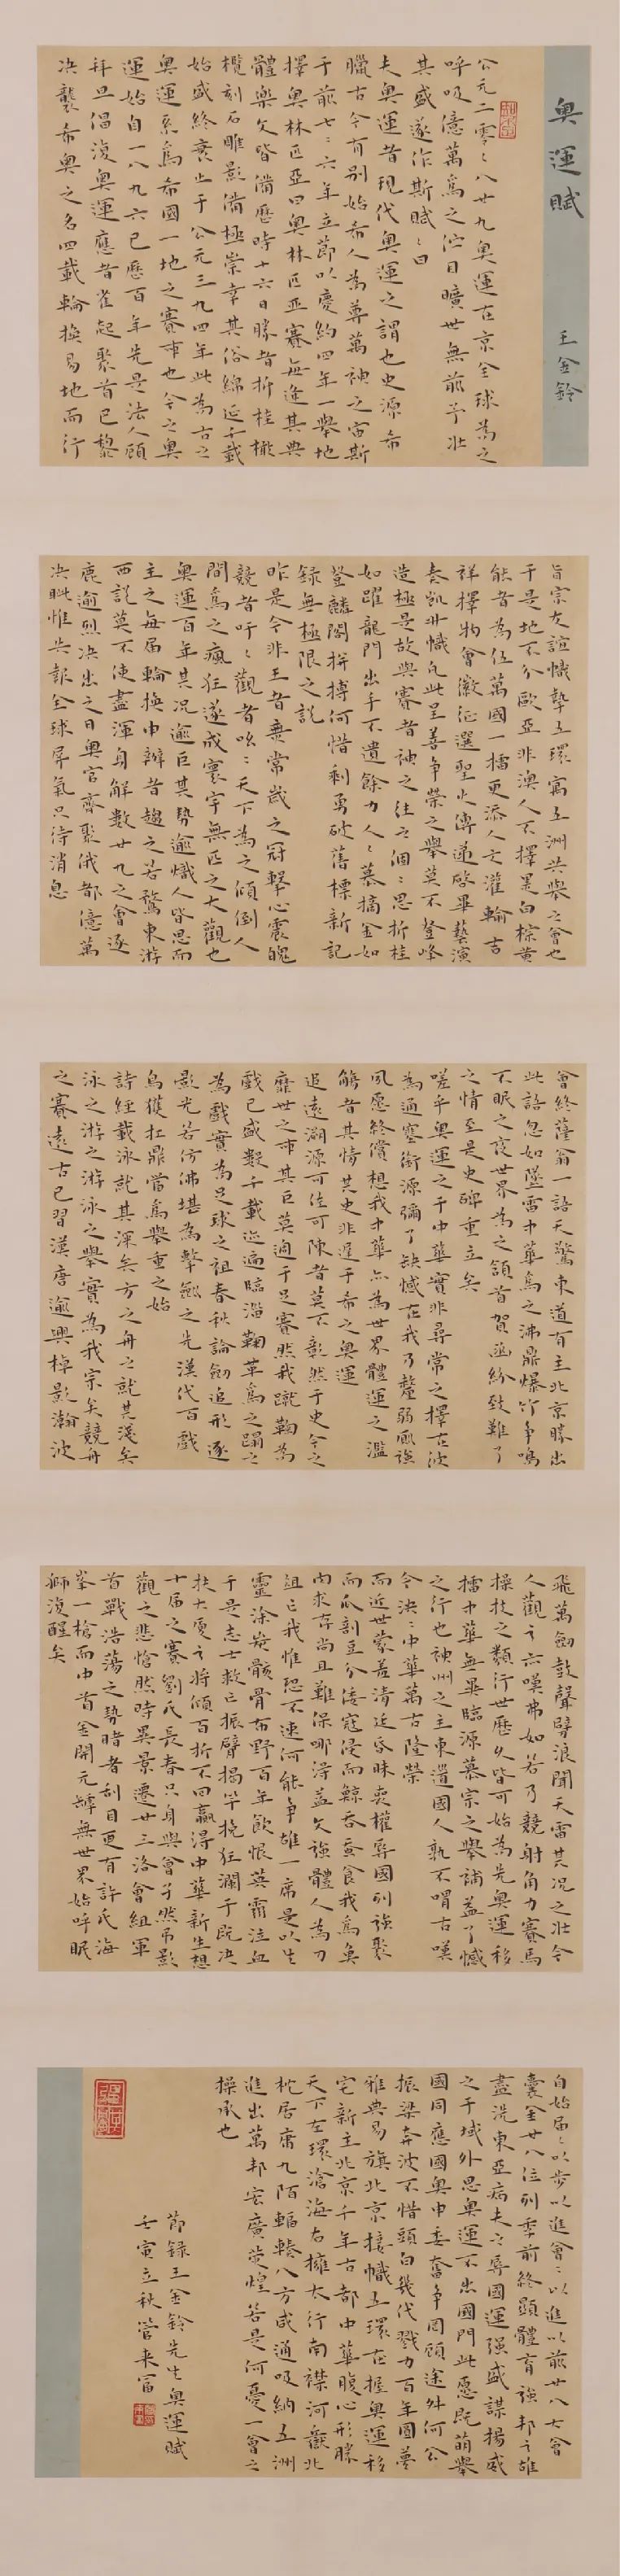 奧運賦
王金鈴
公元二零〻八廿九奧運在京全球為之
呼吸億萬為之伫目曠世無前予壯
其盛遂作斯賦〻曰
夫奧運者現代奧運之謂也史源希
臘古今有別始希人為尊萬神之宙斯
于前七〻六年立節以慶約四年一舉地
擇奧林匹亞曰奧林匹亞賽每進其典
體樂文皆備歷時十六日勝者折桂橄
欖刻石雕影備極崇幸其俗綿延千載
始盛終衰止于公元三九四年此為古之
奧運系為希國一地之賽事也今之奧
運始自一八九六已歷百年先是法人顧
拜旦倡復奧運應者雀起聚首巴黎
決襲希奧之名四載輪換易地而行
旨宗友誼幟擊五環寓五洲共舉之會也
于是地不分歐亞非澳人不擇黑白棕黃
能者為伍萬國一擂更添人文灌輪吉
祥擇物會徽征選聖火傳遞啓畢藝演
奏凱升幟凡此呈善爭榮之舉莫不登峰
造極是故與賽者神之往之個〻思折桂
如躍龍門出手不遺餘力人〻慕摘金如
登麟閣拼搏何惜剩勇破舊標新記
錄無極限之說
昨是今非王者無常歲之冠擊心震魄
競者吁〻觀者吆〻天下為之傾倒人
間為之瘋狂遂成寰宇無匹之大觀也
奧運百年其況逾巨其勢逾熾人皆思而
主之每屆輪換申辦者趨之若鶩東游
西說莫不使盡渾身解數廿九之會逐
鹿逾烈決出之日奧官齊聚俄都億萬
決眦惟共報全球屏氣只待消息
會終薩翁一語天驚東道有主北京勝出
此語忽如墜雷中華為之沸鼎爆竹爭鳴
不眠之夜世界為之頷首賀函紛致難了
之情至是史碑重立矣
嗟乎奧運之于中華實非尋常之擇在彼
為通塞銜源彌了缺憾在我乃釐弱風強
夙愿終償想我中華亦為世界體運之濫
觴者其情其史非遲于希之奧運
追遠溯源可佐可陳者莫不彰然于史今之
靡世之事其巨莫過于足賽然我蹴鞠為
戲已盛數千載巡遍臨淄鞠革為之蹋之
為戲實為足球之祖春秋論劍追形逐
影光若仿佛堪為擊劍之先漢代百戲
烏獲扛鼎當為舉重之始
詩經載泳就其深矣方之舟之就其淺矣
泳之游之游泳之舉實為我宗矣競舟
之賽遠古已習漢唐逾興棹影瀚波
飛萬劍鼓聲劈浪聞天雷其況之壯今
人觀之六嘆弗如若乃競射角力賽馬
操技之類行世歷久皆可始為先奧運移
擂中華無異臨源慕宗之舉補益了憾
之行也神州之主東道國人孰不喟古嘆
今決〻中華萬古隆榮
而近世蒙羞清廷昏昧喪權辱國列強聚
而瓜剖豆分倭寇侵而鯨吞蠶食我為魚
肉求存尚且難保哪得益久強體人為刀
俎亡我惟恐不速何能爭雄一席是以生
靈塗炭骸骨布野百年飲恨英霄泣血
于是志士救亡振臂揭竿挽狂瀾于既決
扶大廈之將傾百折不回贏得中華新生想
十屆之賽劉氏長春只身與會孑然吊影
觀之悲愴然時異景遷廿三洛會組軍
首戰浩蕩之勢睹者刮目更有許氏海
峯一槍而中首金開元罅無世界始呼眠
獅復醒矣
自始屆〻以步以進會〻以進以前廿八大會
囊金廿八位列季前終顯體育強邦之雄
盡洗東亞病夫之辱國運强盛謀揚威
之于域外思奧運不出國門此愿既萌舉
國同應國奧申委奮爭罔顧途舛何公
振梁奔波不惜頭白幾代戮力百年圓夢
雅典易旗北京接幟五環在握奧運移
宅新主北京千年古都中華腹心形勝
天下左環滄海右擁太行南襟河嶽北
枕居庸九陌輻輳八方咸通吸納五洲
進出萬邦宏廣熒煌若是何憂一會之
操承也
節錄王金鈴先生奧運賦
壬寅立秋管來富